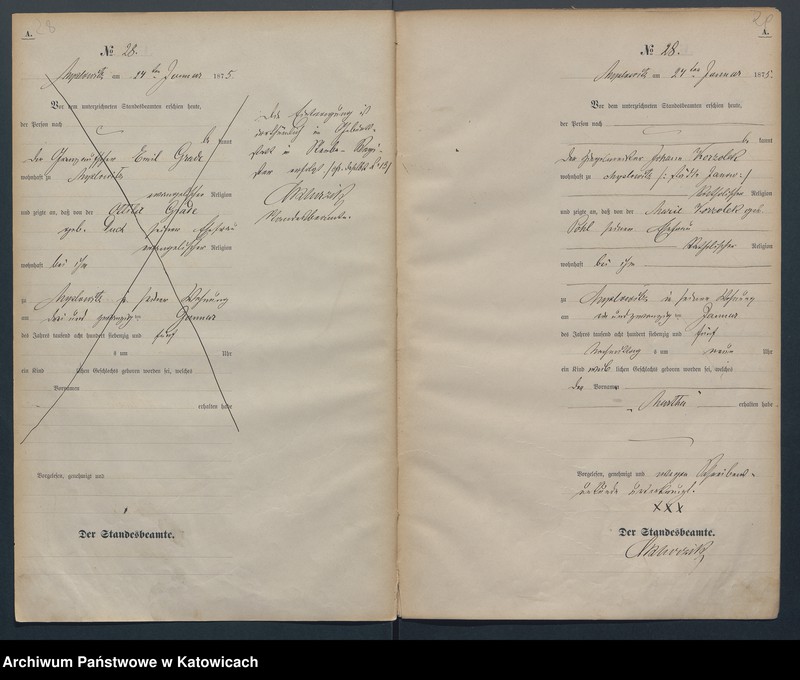 28
A.
№ 28.
Myslowitz am 24ten Januar 1875.
Vor dem unterzeichneten Standesbeamten erschien heute,
der Person nach
be kannt
der Emil Grade
wohnhaft zu Myslowitz
evangelischer Religion
und zeigte an, daß von der Ottilie Grade
geb. seiner Ehefrau
evangelischer Religion
wohnhaft bei ihm
zu Myslowitz in seiner Wohnung
am drei und zwanzigsten Januar
des Jahres tausend acht hundert siebenzig und fünf
s um Uhr
ein Kind lichen Geschlechts geboren worden sei, welches
Vornamen
erhalten habe
Vorgelesen, genehmigt und
Der Standesbeamte.
Die Eintragung ist
in
in Neben-Regi-
ster erfolgt
Standesbeamte.
28
A.
№ 28.
Myslowitz am 24ten Januar 1875.
Vor dem unterzeichneten Standesbeamten erschien heute,
der Person nach
be kannt
der Johann Korzolek
wohnhaft zu Myslowitz /: Städt. Janow :/
katholischer Religion
und zeigte an, daß von der Marie Korzolek geb.
Pohl seiner Ehefrau
katholischer Religion
wohnhaft bei ihm
zu Myslowitz in seiner Wohnung
am und zwanzigsten Januar
des Jahres tausend acht hundert siebenzig und fünf
Nachmittag s um neun Uhr
ein Kind weib lichen Geschlechts geboren worden sei, welches
den Vornamen
„Martha" erhalten habe
Vorgelesen, genehmigt und wegen Schreibens-
unkunde unterkreuzt.
XXX
Der Standesbeamte.
Archiwum Państwowe w Katowicach